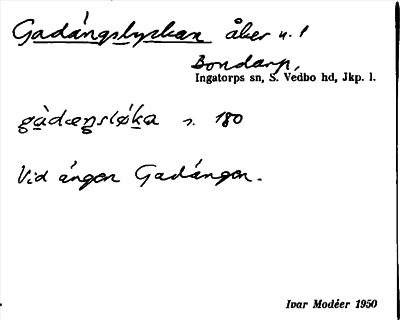 Gadängslyckan åker n. 1
Bondarp,
Ingatorps sn, S. Vedbo hd, Jkp. l.
s. 180
Vid ängen Gadängen.
Ivar Modéer 1950